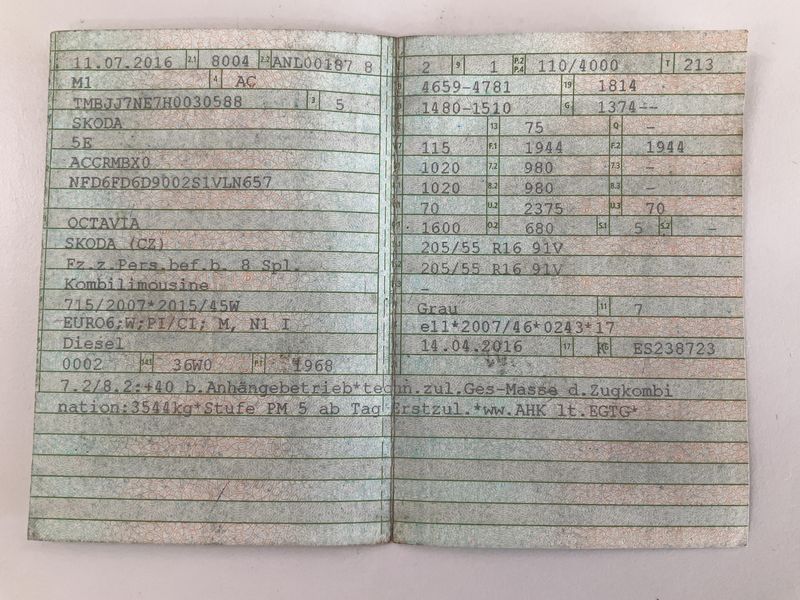 11.07.2016 2.1 8004 2.2 ANL00187 8
M1 4 AC
TMBJJ7NE7H0030588 3 5
SKODA
5E
ACCRMBX0
NFD6FD6D9002S1VLN657
OCTAVIA
SKODA (CZ)
Fz.z.Pers.bef.b. 8 Spl.
Kombilimousine
715/2007*2015/45W
EURO6;W;PI/CI; M, N1 I
Diesel
0002 14.1 36W0 P.1 1968
2 9 1 P.2 P.4 110/4000 T 213
4659-4781 19 1814
1480-1510 G 1374--
13 75 Q -
115 F.1 1944 F.2 1944
1020 7.2 980 7.3 -
1020 8.2 980 8.3 -
70 U.2 2375 U.3 70
1600 O.2 680 S.1 5 S.2 -
205/55 R16 91V
205/55 R16 91V
-
Grau 11 7
e11*2007/46*0243*17
14.04.2016 17 K 16 ES238723
7.2/8.2:+40 b.Anhängebetrieb*techn.zul.Ges-Masse d.Zugkombi
nation:3544kg*Stufe PM 5 ab Tag Erstzul.*ww.AHK lt.EGTG*